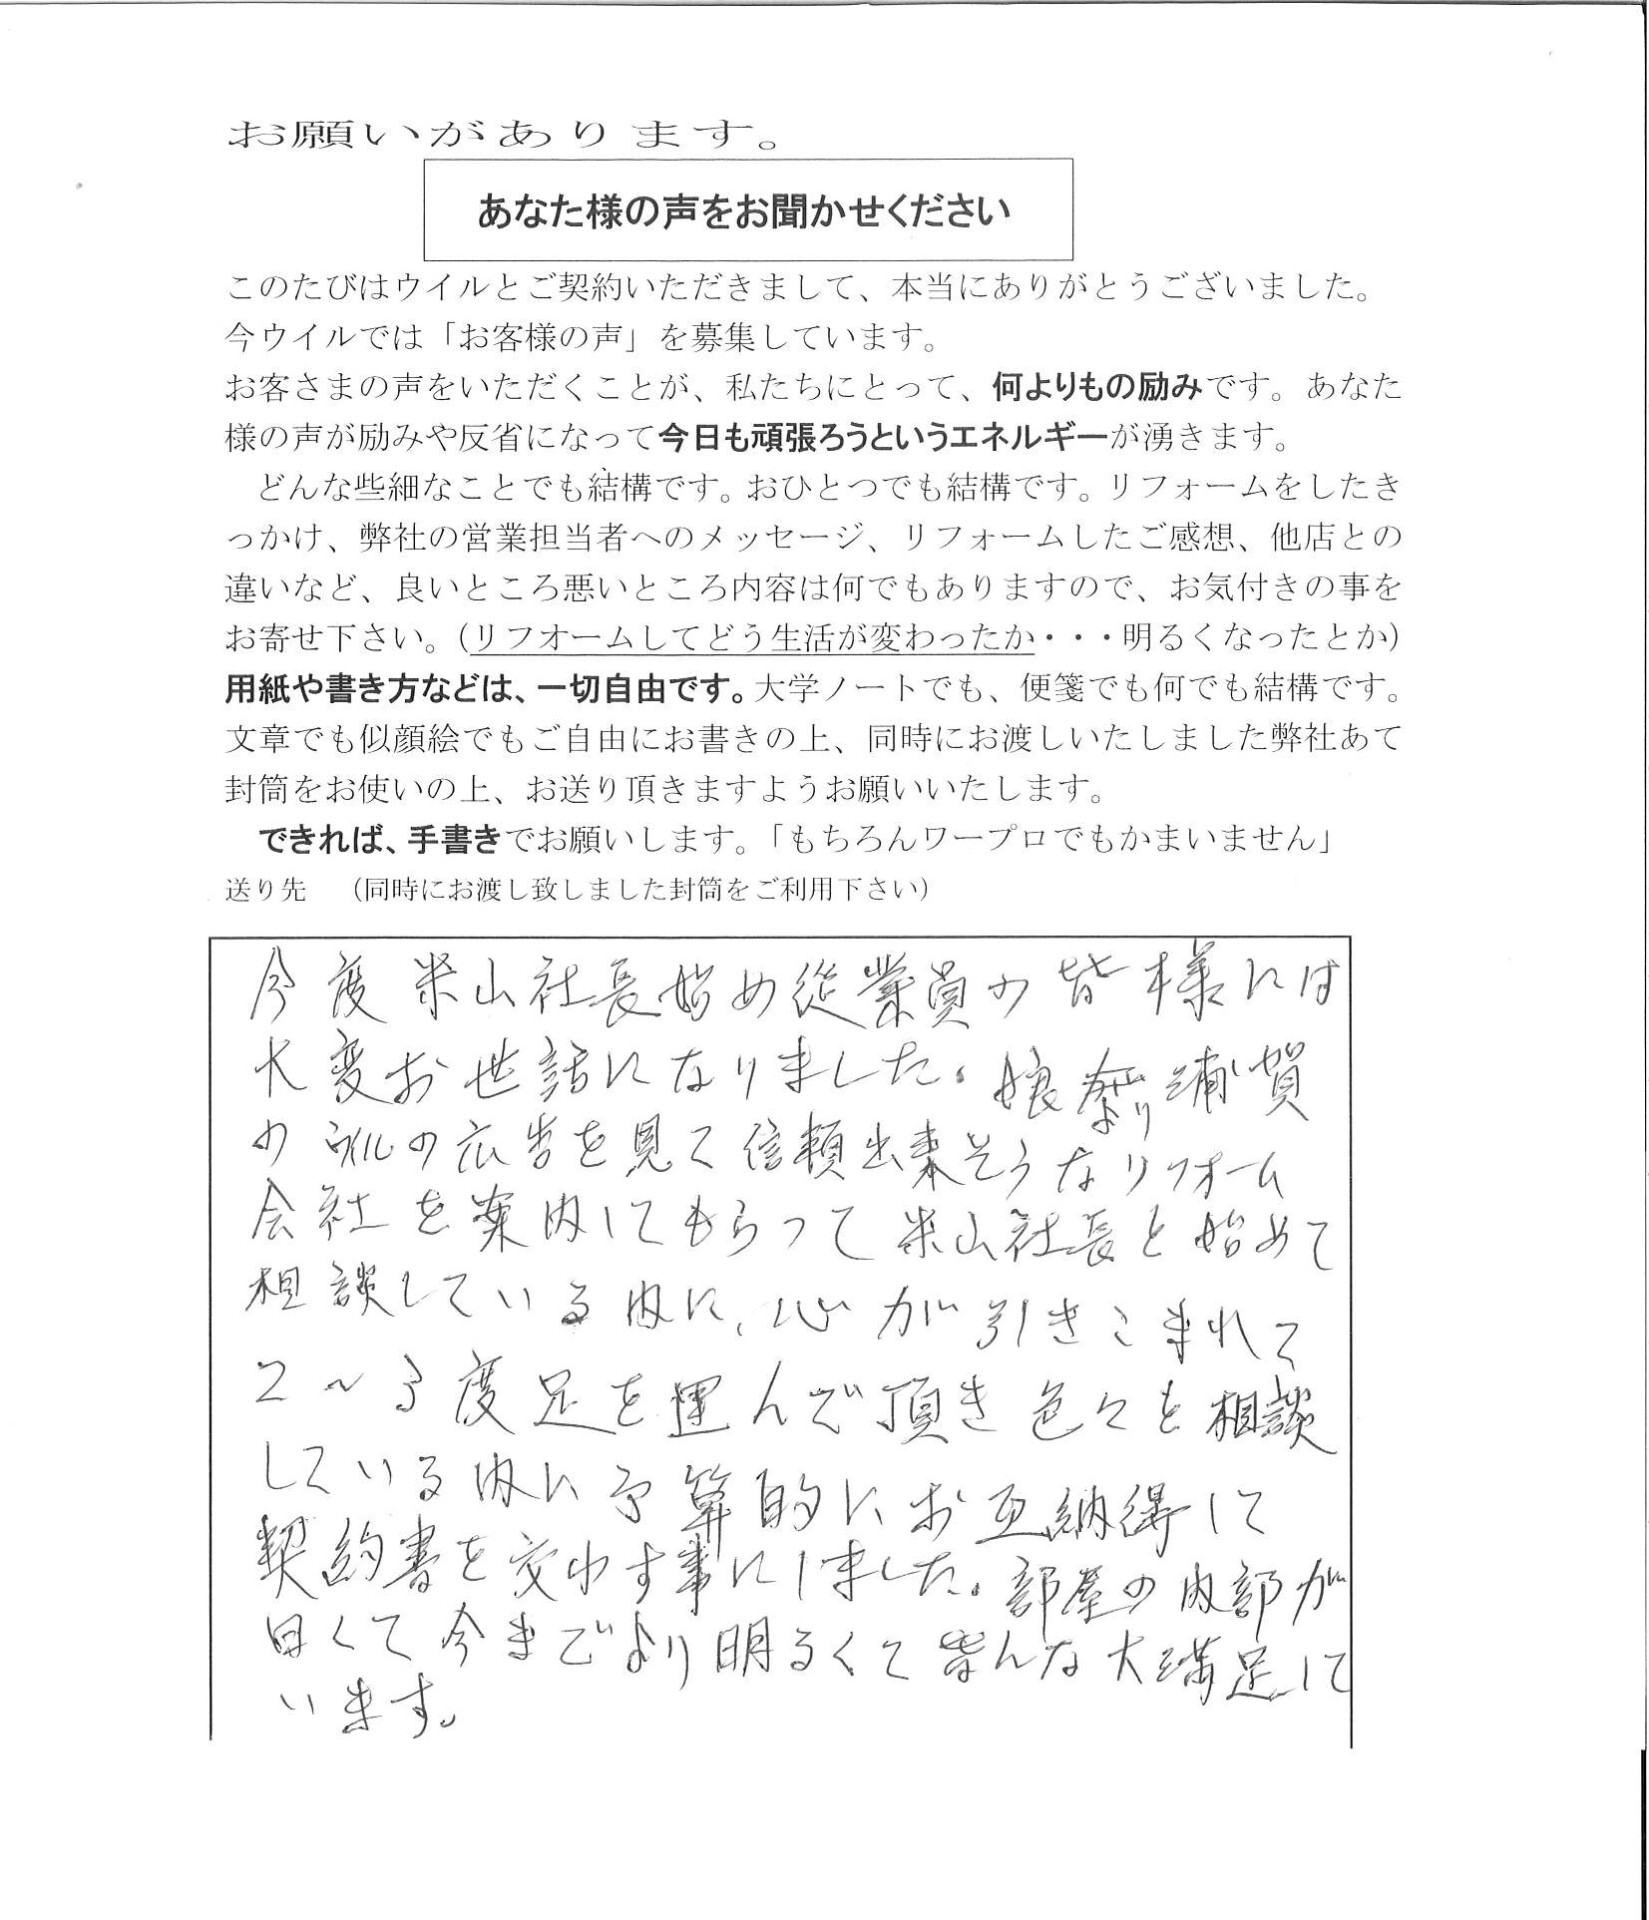 お願いがあります。
あなた様の声をお聞かせください
このたびはウイルとご契約いただきまして、本当にありがとうございました。
今ウイルでは「お客様の声」を募集しています。
お客さまの声をいただくことが、私たちにとって、何よりもの励みです。あなた
様の声が励みや反省になって今日も頑張ろうというエネルギーが湧きます。
どんな些細なことでも結構です。おひとつでも結構です。リフォームをしたき
っかけ、弊社の営業担当者へのメッセージ、リフォームしたご感想、他店との
違いなど、良いところ悪いところ内容は何でもありますので、お気付きの事を
お寄せ下さい。（リフォームしてどう生活が変わったか・・・明るくなったとか）
用紙や書き方などは、一切自由です。大学ノートでも、便箋でも何でも結構です。
文章でも似顔絵でもご自由にお書きの上、同時にお渡しいたしました弊社あて
封筒をお使いの上、お送り頂きますようお願いいたします。
できれば、手書きでお願いします。「もちろんワープロでもかまいません」
送り先　（同時にお渡し致しました封筒をご利用下さい）
今度米山社長始め従業員の皆様には
大変お世話になりました。娘より浦賀
のウイルの広告を見て信頼出来そうなリフォーム
会社を案内してもらって米山社長と始めて
相談している内に、心が引きこまれて
2～3度足を運んで頂き色々を相談
している内に予算的にお互納得して
契約書を交わす事にしました。部屋の内部が
白くて今までより明るくて皆んな大満足して
います。